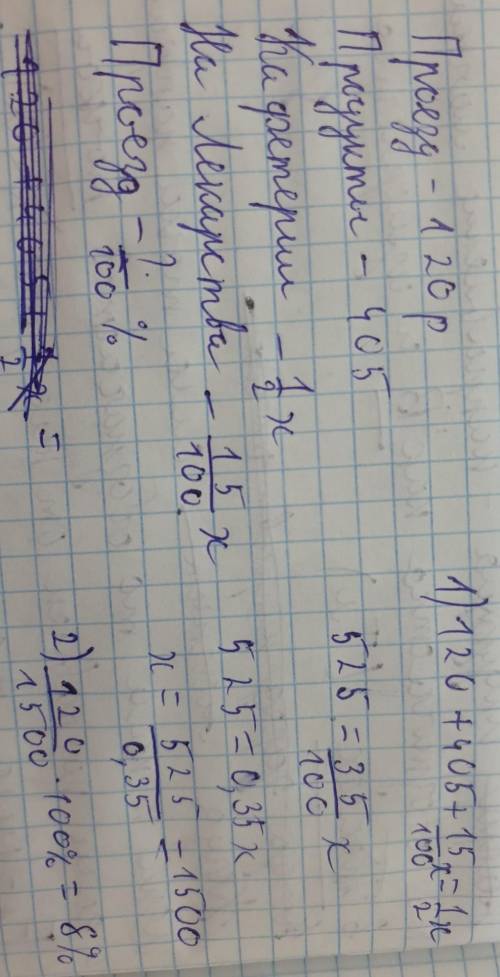 Проезд - 120 р
Продукты - 405
Кафетерии - 1/2 x
На Лекарства - 15/100 x
Проезд - ?/100 %
1) 120 + 405 + 15/100 x = 1/2 x
525 = 35/100 x
525 = 0,35 x
x = 525/0,35 = 1500
2) 120/1500 · 100% = 8%